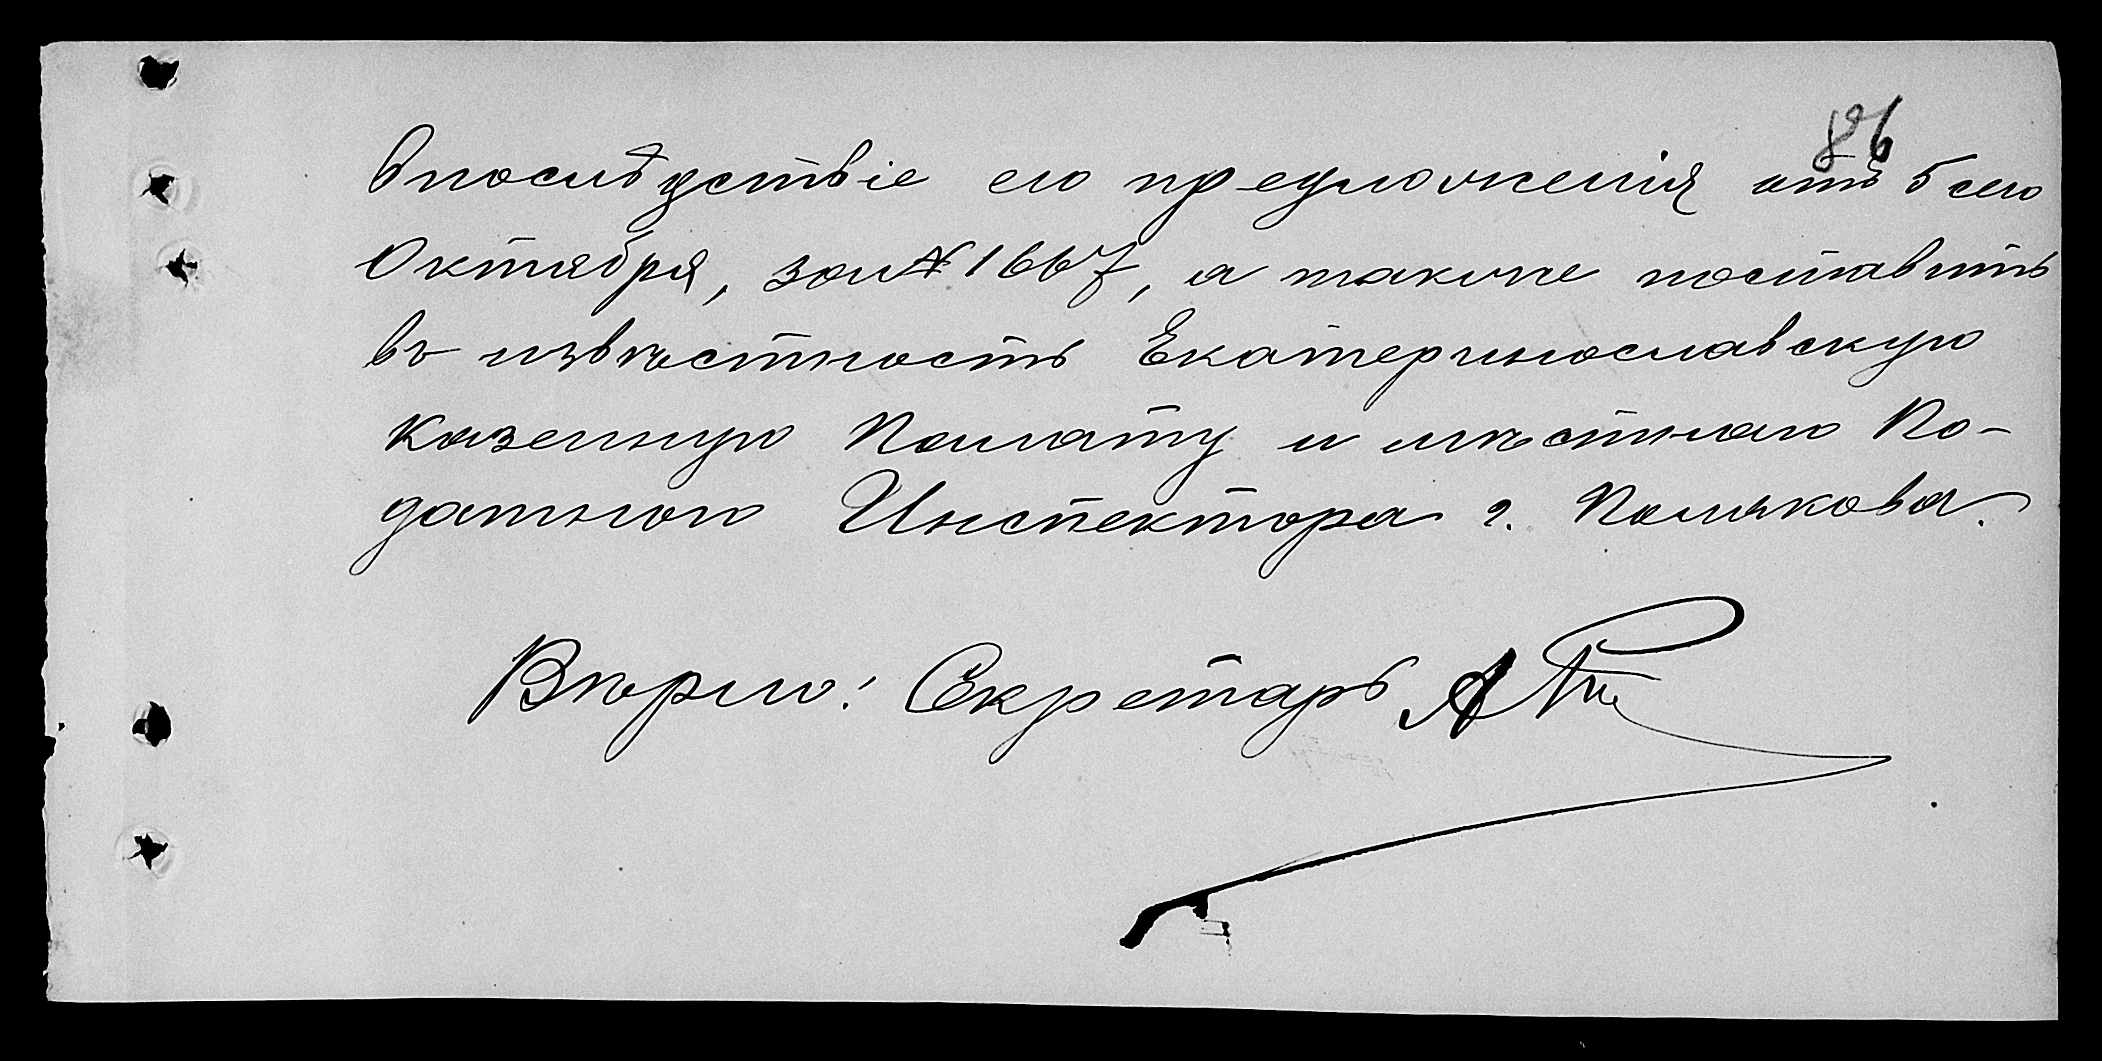 86
впослѣдствіе его предложенія отъ 5 сего
Октября, за № 1667, а также поставить
въ извѣстность Екатеринославскую
Казенную Палату и мѣстнаго По-
датного Инспектора г. Полякова.
Вѣрно: Секретарь А